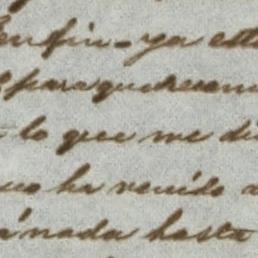 En fin - ya est
para que
lo que me di
ha venido a
nada hasta